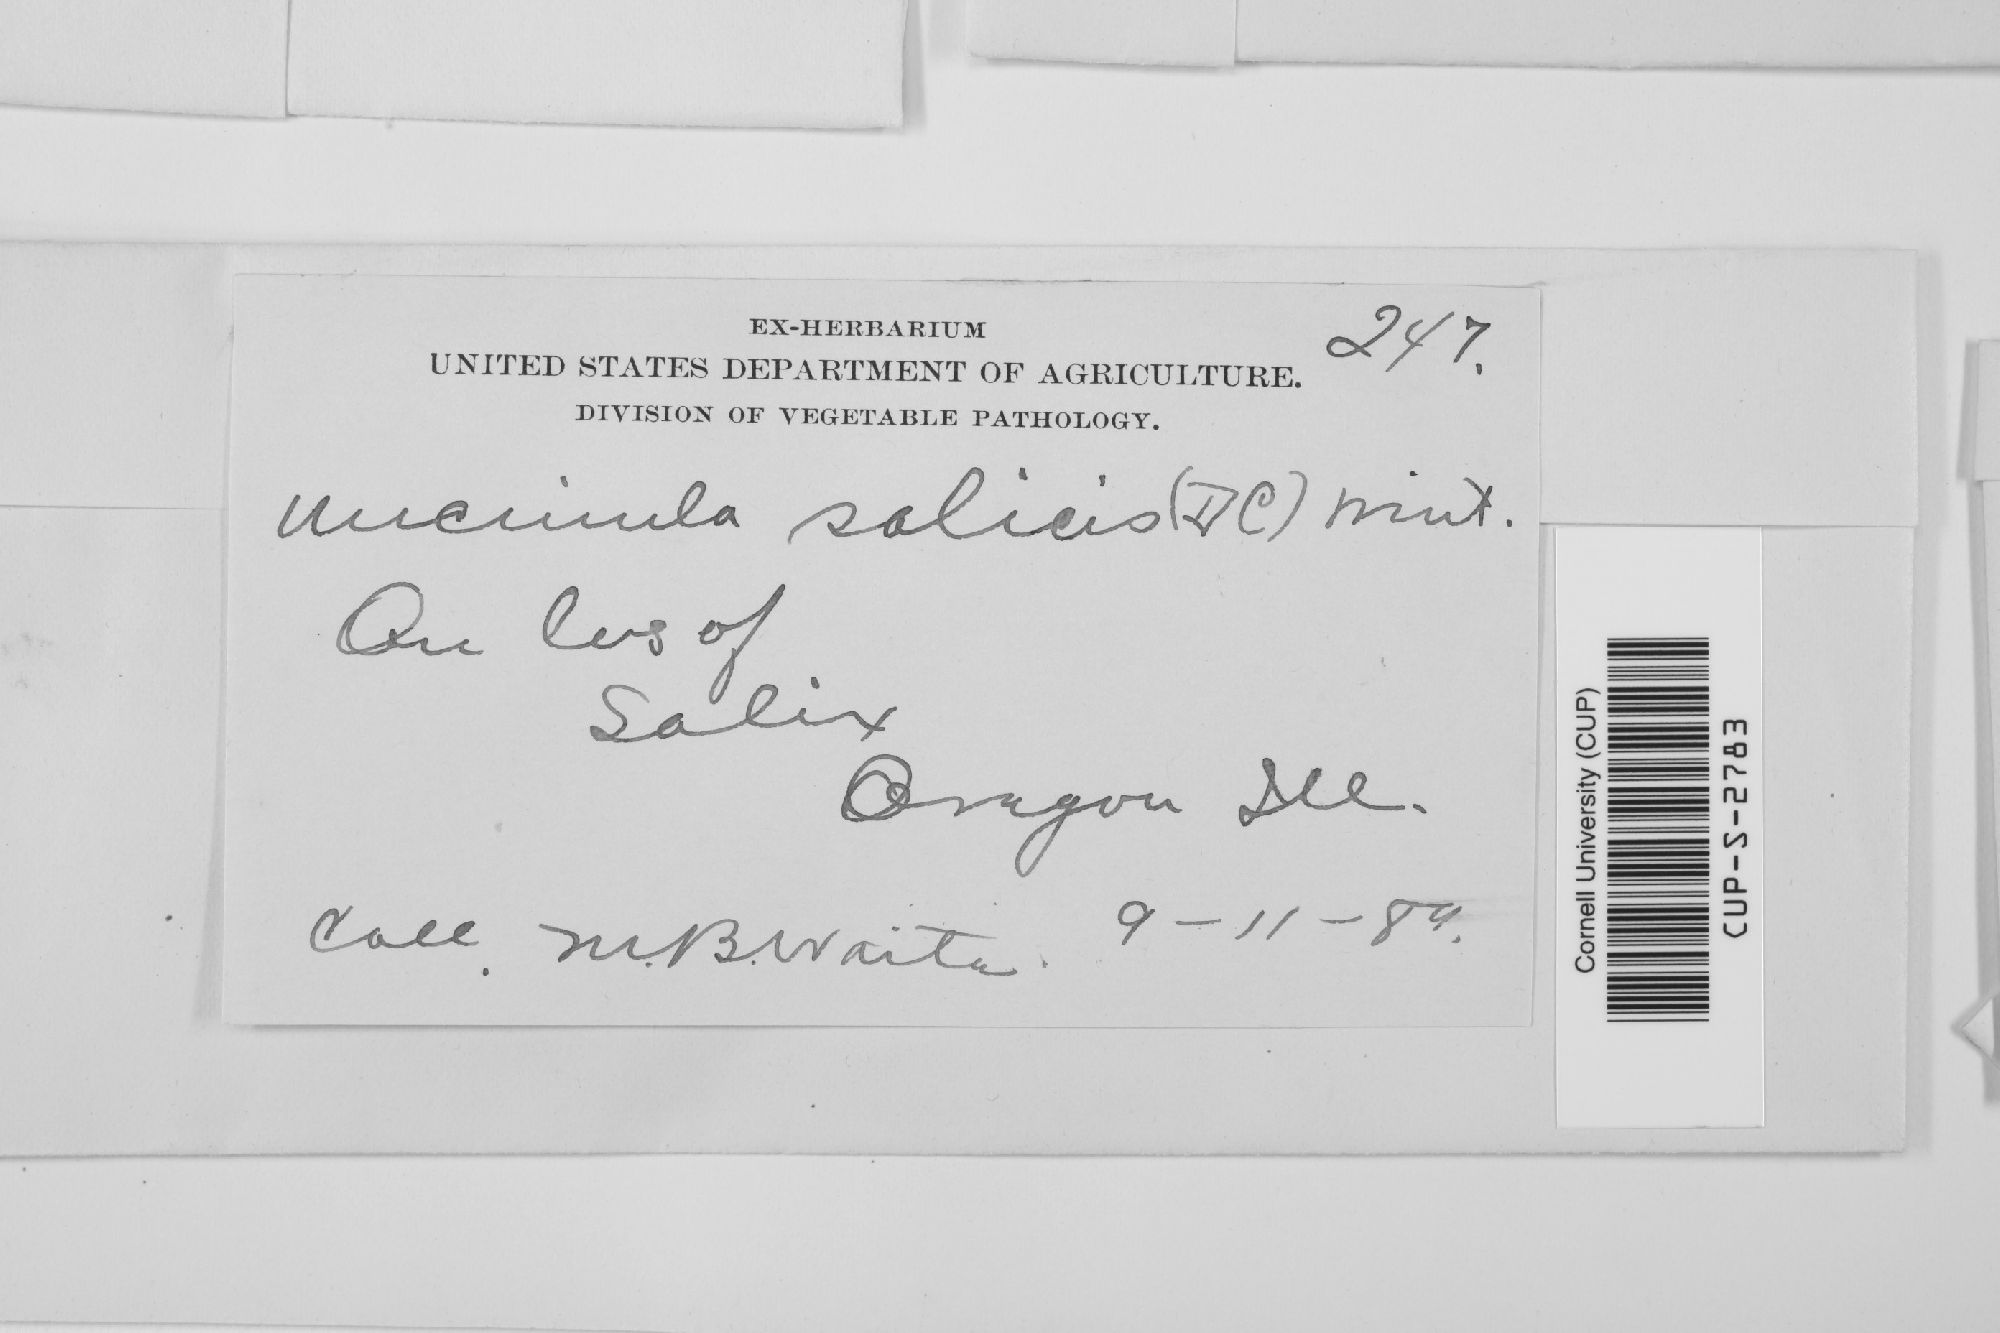 EX-HERBARIUM
247.
UNITED STATES DEPARTMENT OF AGRICULTURE.
DIVISION OF VEGETABLE PATHOLOGY.
Uncinula salicis (DC) Wint.
On lvs of
Salix
Oregon Ill.
Coll. M.B. Waite. 9-11-89.
Cornell University (CUP)
CUP-S-2783